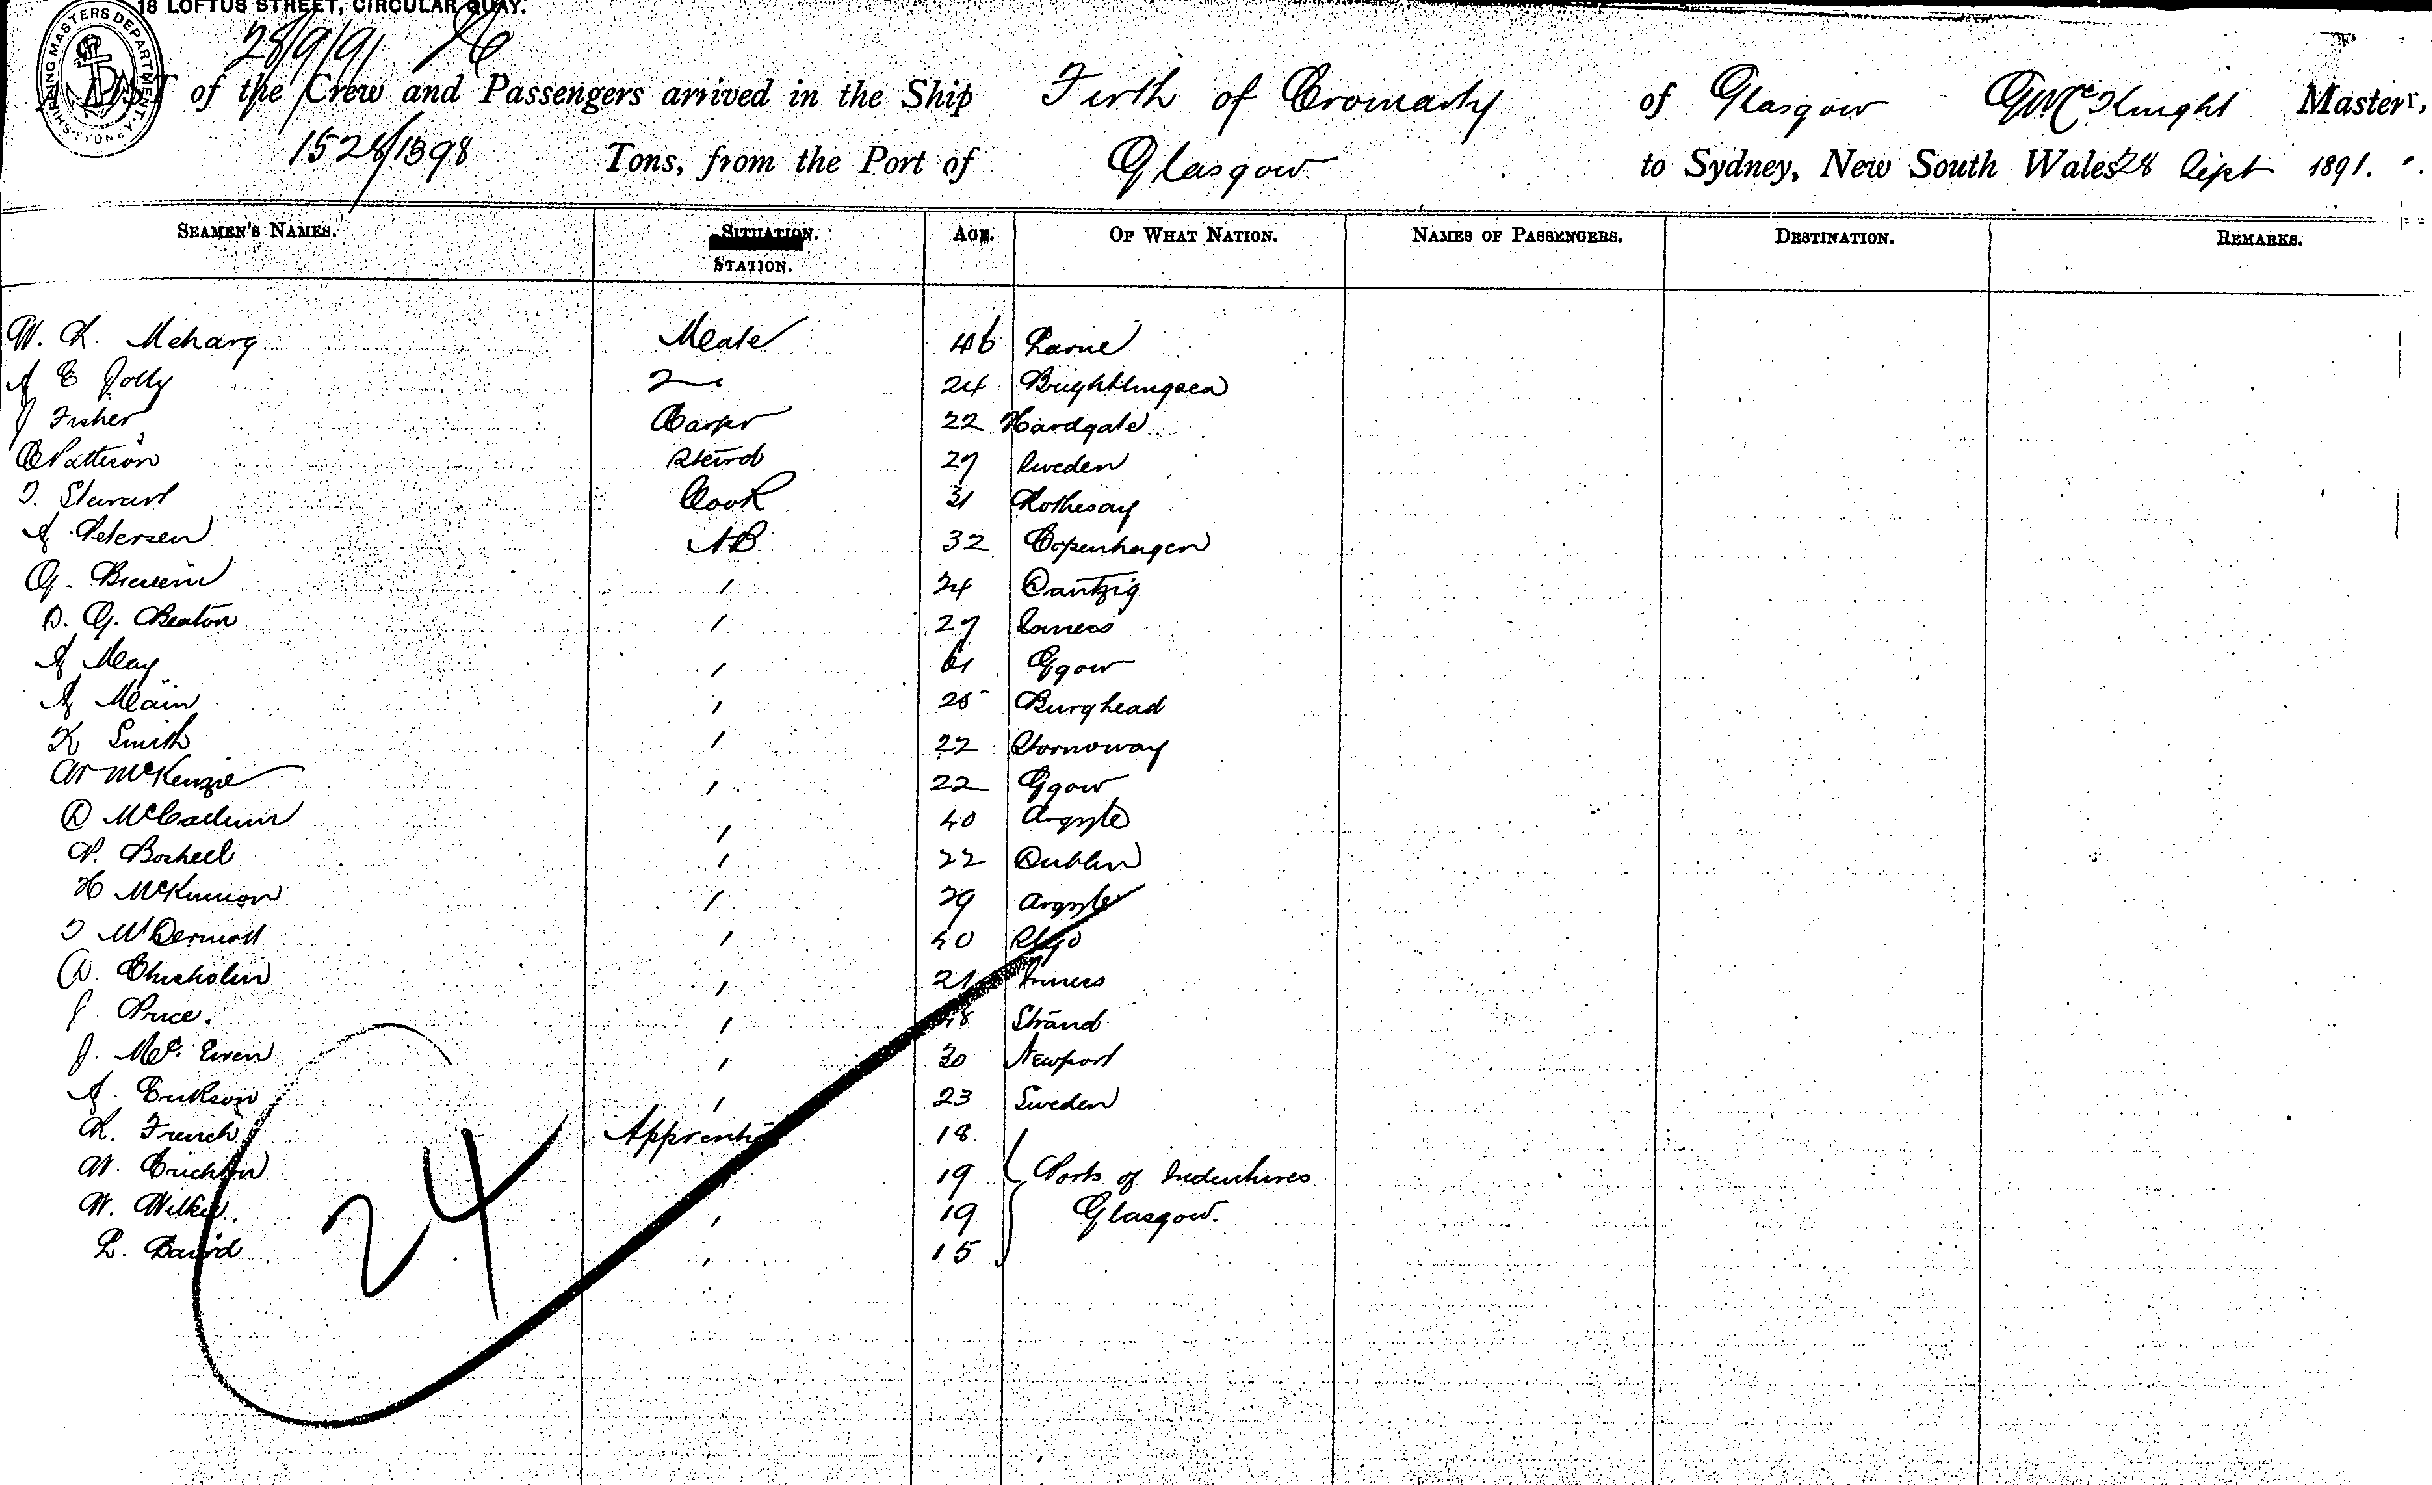 18 LOFTUS STREET, CIRCULAR QUAY.
SHIPPING MASTERS DEPARTMENT
28/9/91
LIST of the Crew and Passengers arrived in the Ship Firth of Cromarty of Glasgow Master,
1528/1398 Tons, from the Port of Glasgow to Sydney, New South Wales 28 Sept 1891.
SEAMEN'S NAMES. SITUATION. STATION. AGE. OF WHAT NATION. NAMES OF PASSENGERS. DESTINATION. REMARKS.
Meharg Mate 46 Larne
A E Jolly 2 24 Brightlingsea
J Fisher Carpr 22 Hardgate
Patterson Steward 27 Sweden
Stewart Cook 31 Rothesay
A Petersen AB 32 Copenhagen
G. 24 Dantzig
D. G. Beaton 27
A May 61 Ggow
A Main 25 Burghead
K Smith 22 Stornoway
McKenzie 22 Ggow
D McCallum 40 Argyle
22 Dublin
H McKinnon 29 Argyle
McDermott 40
D. Chisholm 21
J. Price. Strand
J. McEwen 30 Newport
A. Erikson 23 Sweden
R. French Apprentice 18
W. Crichton 19 Ports of Indentures
W. Wilkie. 19 Glasgow.
Baird 15
24